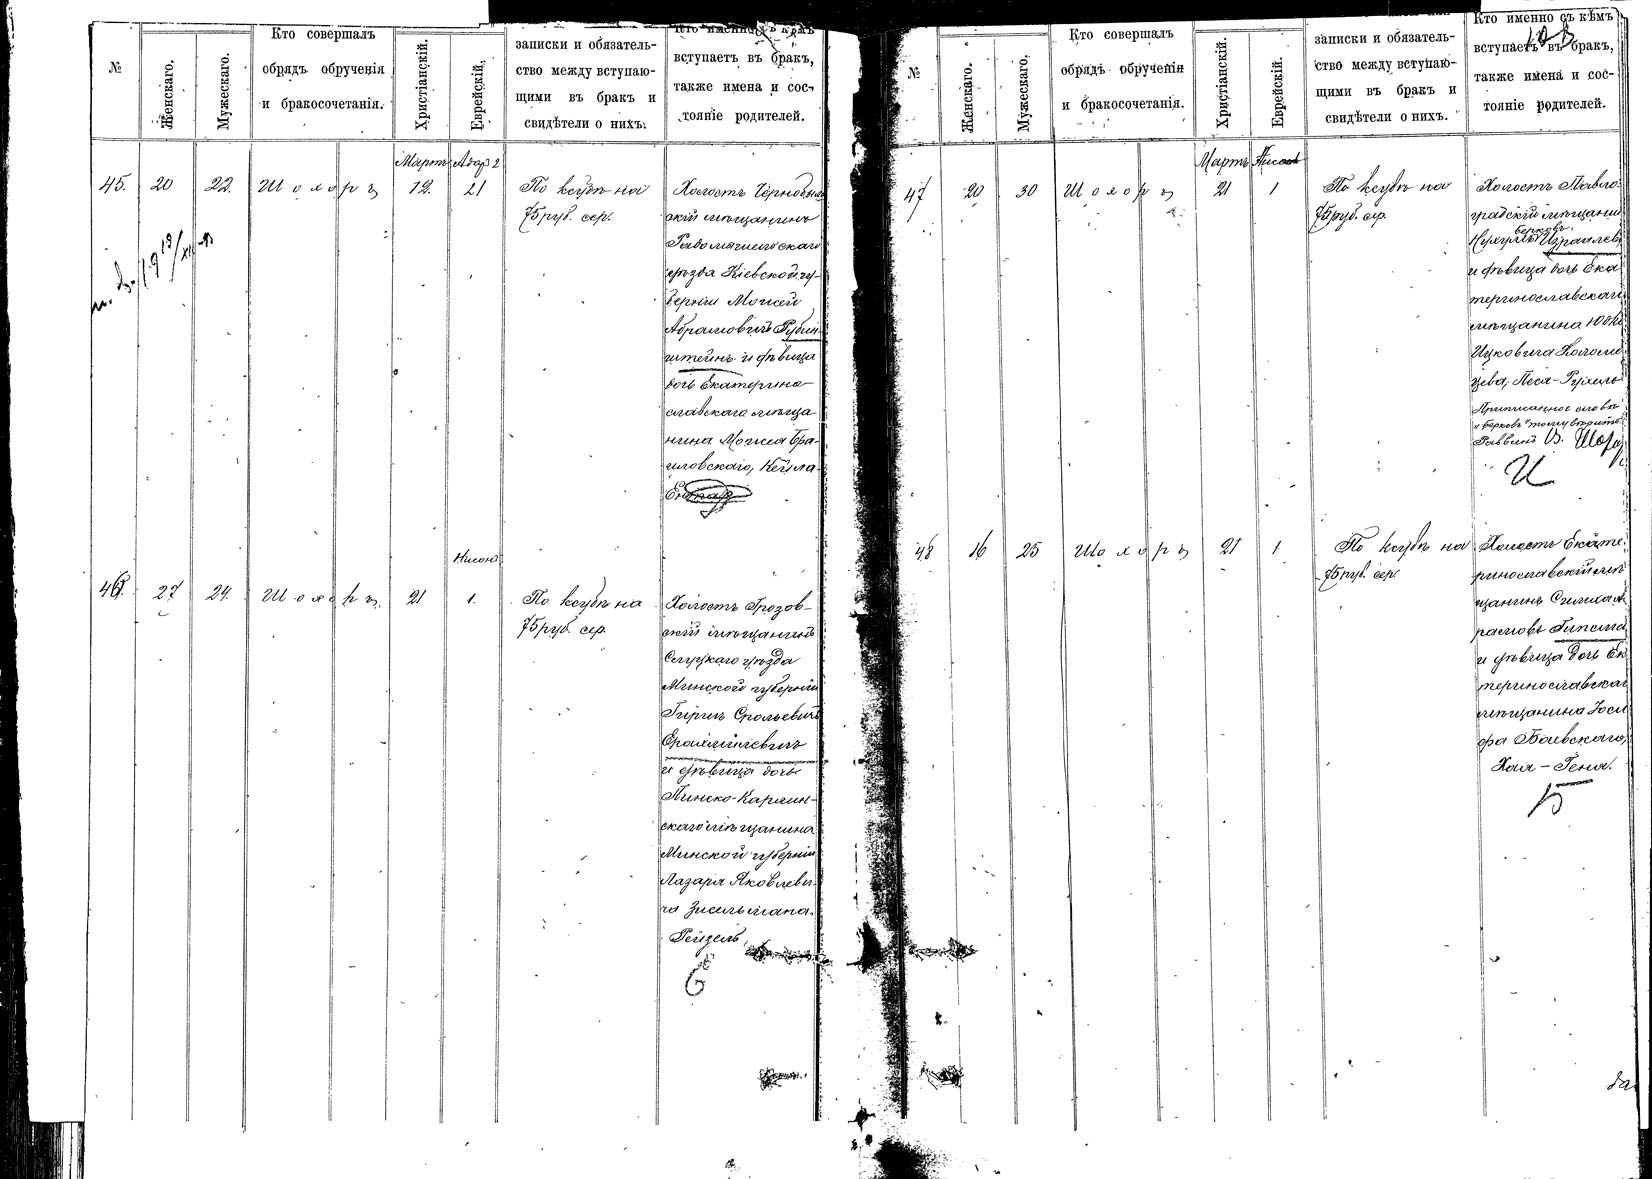 №
Женскаго.
Мужескаго.
Кто совершалъ
обрядъ обрученія
и бракосочетанія.
Христіанскій.
Еврейскій.
записки и обязатель-
ство между вступаю-
щими въ бракъ и
свидѣтели о нихъ.
Кто именно съ кѣмъ
вступаетъ въ бракъ,
также имена и сос-
тояніе родителей.
Мартъ Адар 2
45. 20 22. Шохоръ 12. 21
По ксубѣ на
75 руб. сер.
Холостъ Чернобыль-
скій мѣщанинъ
Радомысльскаго
уѣзда Кіевской гу-
берніи Моисей
Абрамовичъ Рубин-
штейнъ и дѣвица
дочь Екатерино-
славскаго мѣща-
нина Моисея Бра-
иловскаго, Кейла-
Нисонъ
46. 27 24. Шохоръ. 21 1.
По ксубѣ на
75 руб. сер.
Холостъ Грозов-
скій мѣщанинъ
Слуцкаго уѣзда
Минской губерніи
Сролевичъ
и дѣвица дочь
Пинско-Карлин-
скаго мѣщанина
Минской губерніи
Лазаря Яковлеви-
ча Зисельмана.
Рейзель
№
Женскаго.
Мужескаго.
Кто совершалъ
обрядъ обрученія
и бракосочетанія.
Христіанскій.
Еврейскій.
записки и обязатель-
ство между вступаю-
щими въ бракъ и
свидѣтели о нихъ.
Кто именно съ кѣмъ
вступаетъ въ бракъ,
также имена и сос-
тояніе родителей.
Мартъ Нисонъ
47 20 30 Шохоръ 21 1
По ксубѣ на
75 руб. сер.
Холостъ Павло-
градскій мѣщанин
Берковъ
Израилев
и дѣвица дочь Ека
теринославскаго
мѣщанина
Ицковича Коломи
цева, Песя-Рухель
Приписанное слово
Раввинъ В. Шохоръ
И
48 16 25 Шохоръ 21 1
По ксубѣ на
75 руб. сер.
Холостъ Екате-
ринославскій мѣ
щанинъ Симха
и дѣвица дочь Ека
теринославскаго
мѣщанина Іоси
фа Баевскаго,
Хая-Геня.
Б